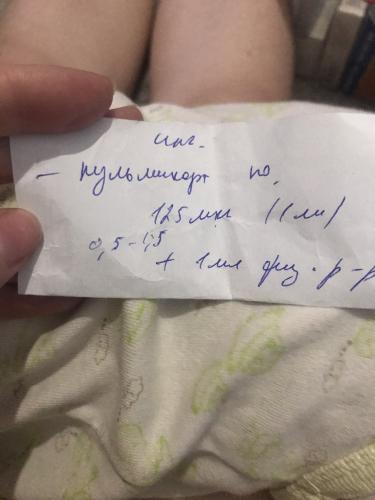 инг.
- пульмикорт по
125 мкг (1 мл)
0,5-1,5
+ 1 мл физ. р-р